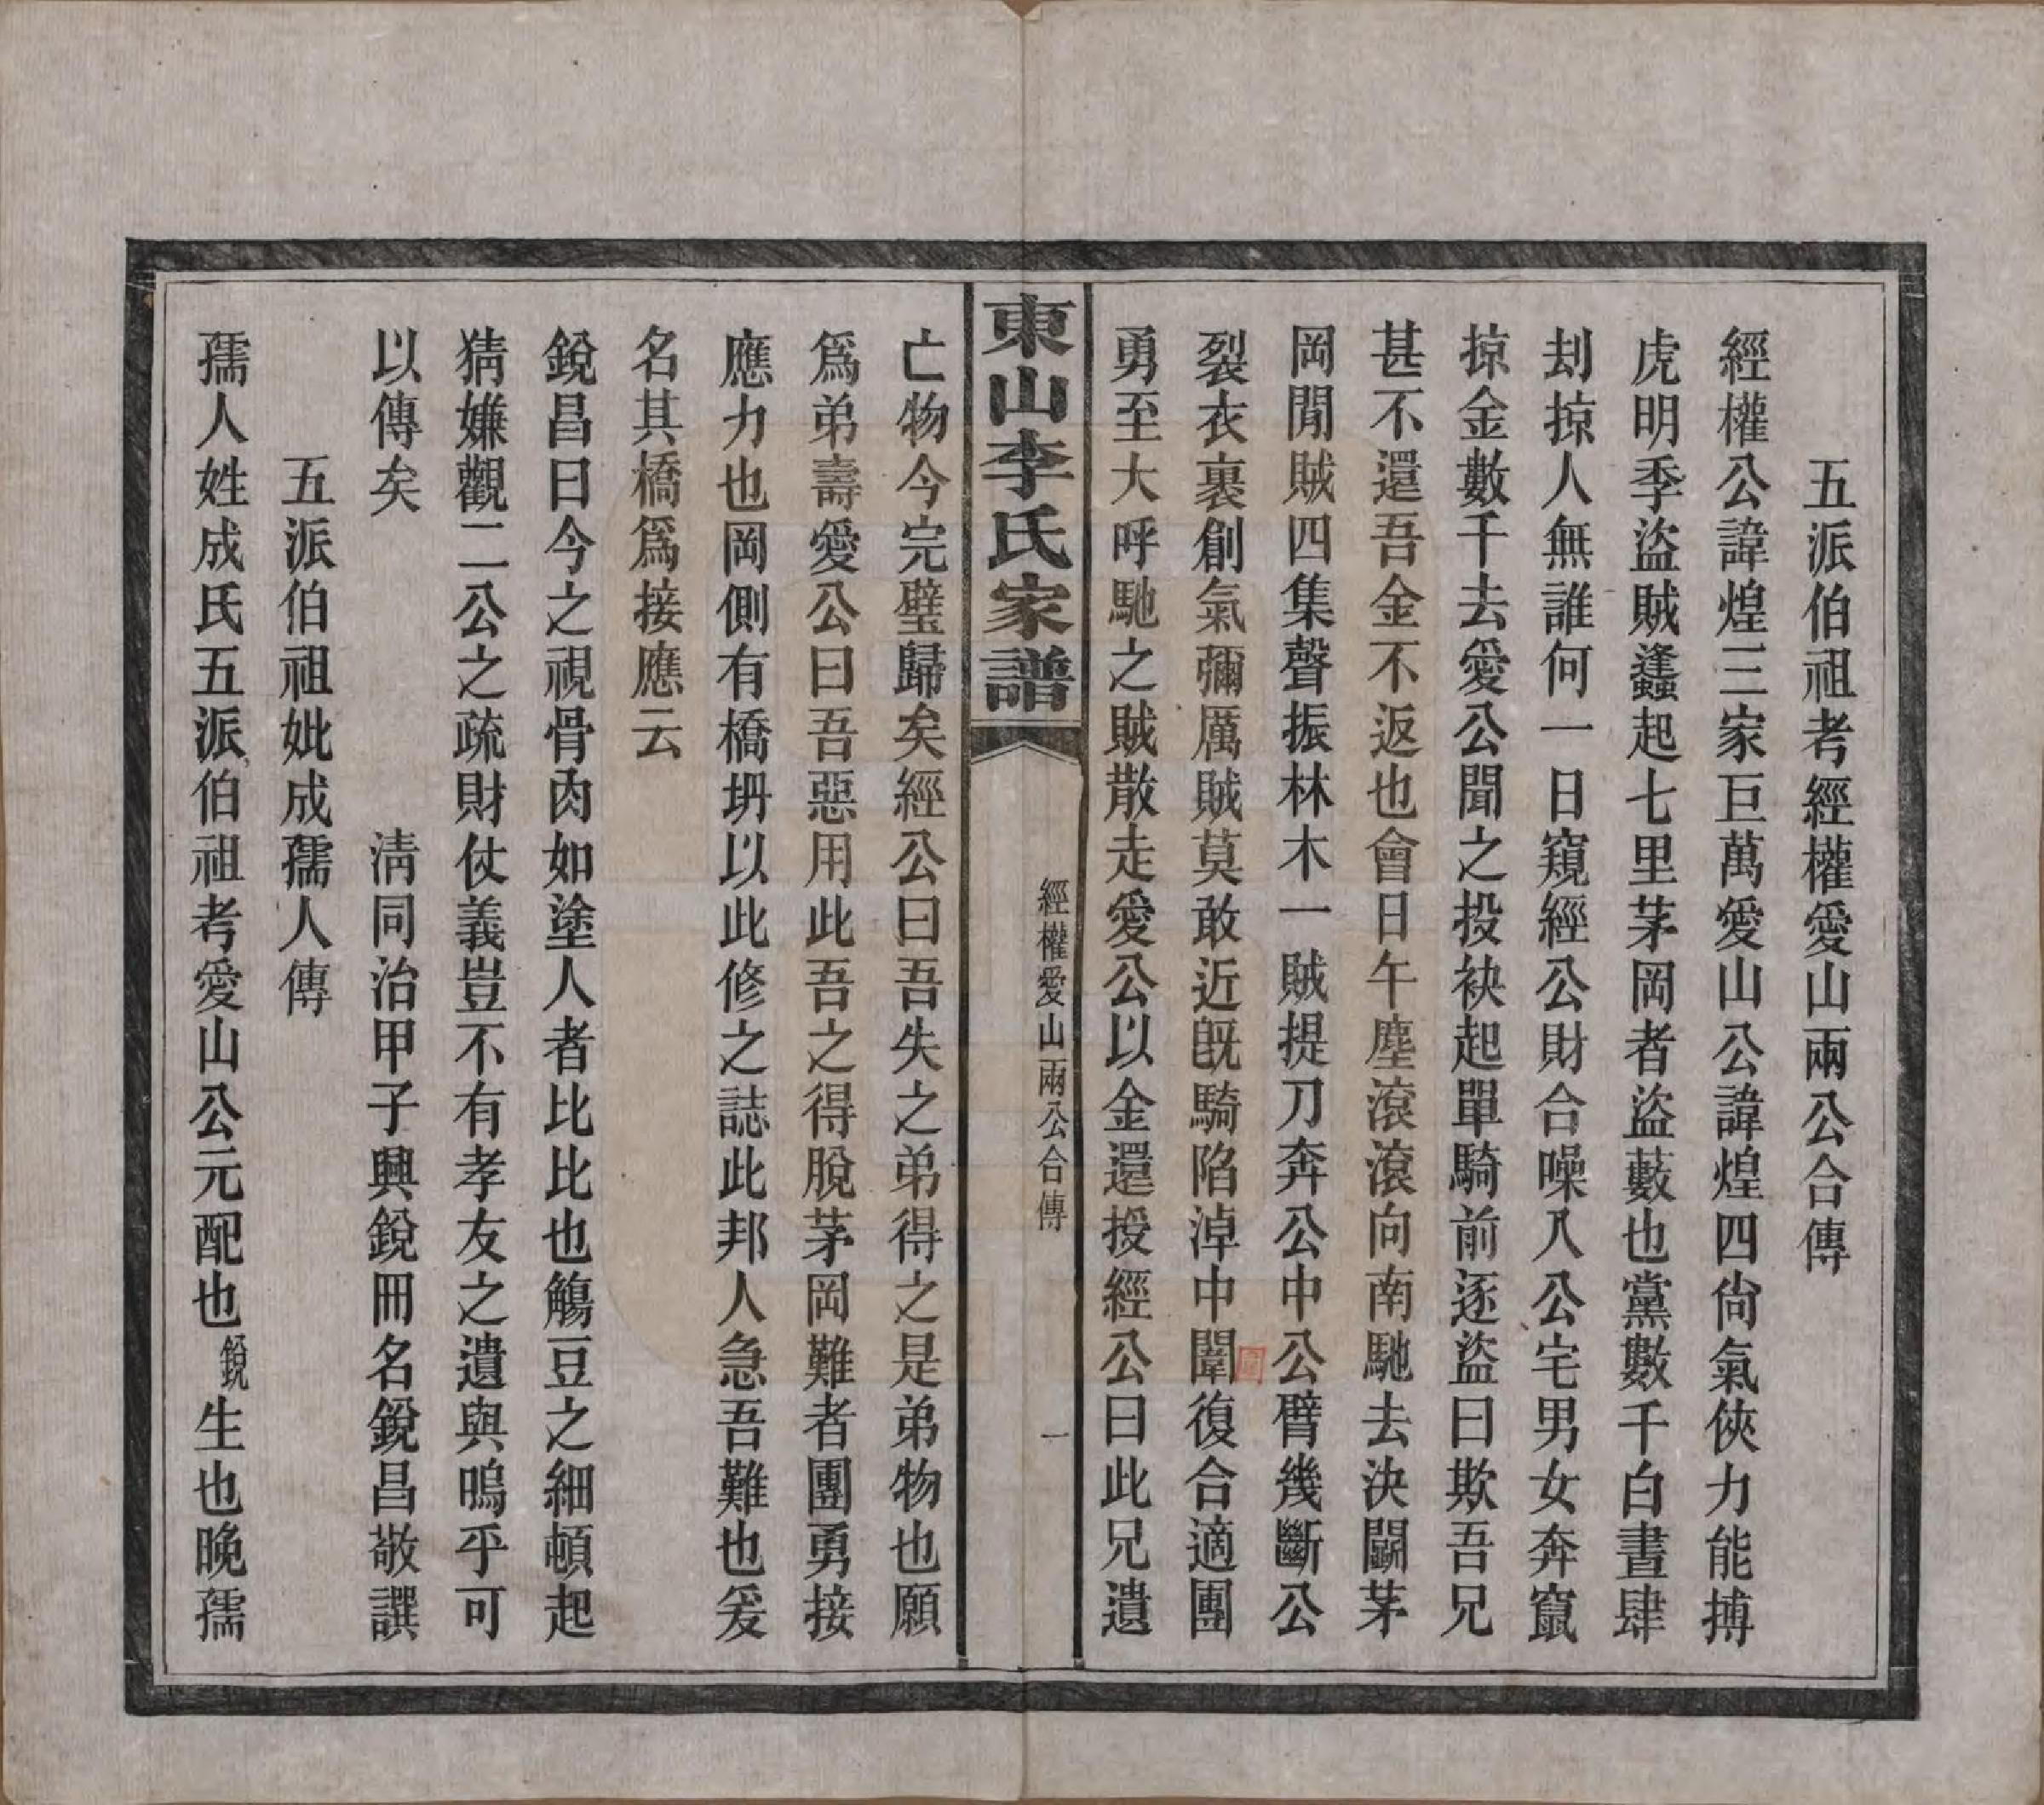 五派伯祖考經權愛山兩公合傳
經權公諱煌三家巨萬愛山公諱煌四尙氣俠力能搏
虎明季盜賊蠭起七里茅岡者盜藪也黨數千白晝肆
刦掠人無誰何一日窺經公財合噪入公宅男女奔竄
掠金數千去愛公聞之投袂起單騎前逐盜曰欺吾兄
甚不還吾金不返也會日午塵滾滾向南馳去決鬭茅
岡閒賊四集聲振林木一賊提刀奔公中公臂幾斷公
裂衣裹創氣彌厲賊莫敢近旣騎陷淖中圍復合適團
勇至大呼馳之賊散走愛公以金還授經公曰此兄遺
東山李氏家譜
經權愛山兩公合傳
一
亡物今完璧歸矣經公曰吾失之弟得之是弟物也願
爲弟壽愛公曰吾惡用此吾之得脫茅岡難者團勇接
應力也岡側有橋坍以此修之誌此邦人急吾難也爰
名其橋爲接應云
銳昌曰今之視骨肉如塗人者比比也觴豆之細頓起
猜嫌觀二公之疏財仗義豈不有孝友之遺與嗚乎可
以傳矣
淸同治甲子興銳冊名銳昌敬譔
五派伯祖妣成孺人傳
孺人姓成氏五派伯祖考愛山公元配也銳生也晚孺